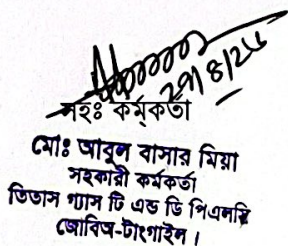 ২৭/৪/২৫
সহঃ কর্মকর্তা
মোঃ আবুল বাসার মিয়া
সহকারী কর্মকর্তা
তিতাস গ্যাস টি এন্ড ডি পিএলসি
জোবিঅ-টাংগাইল।